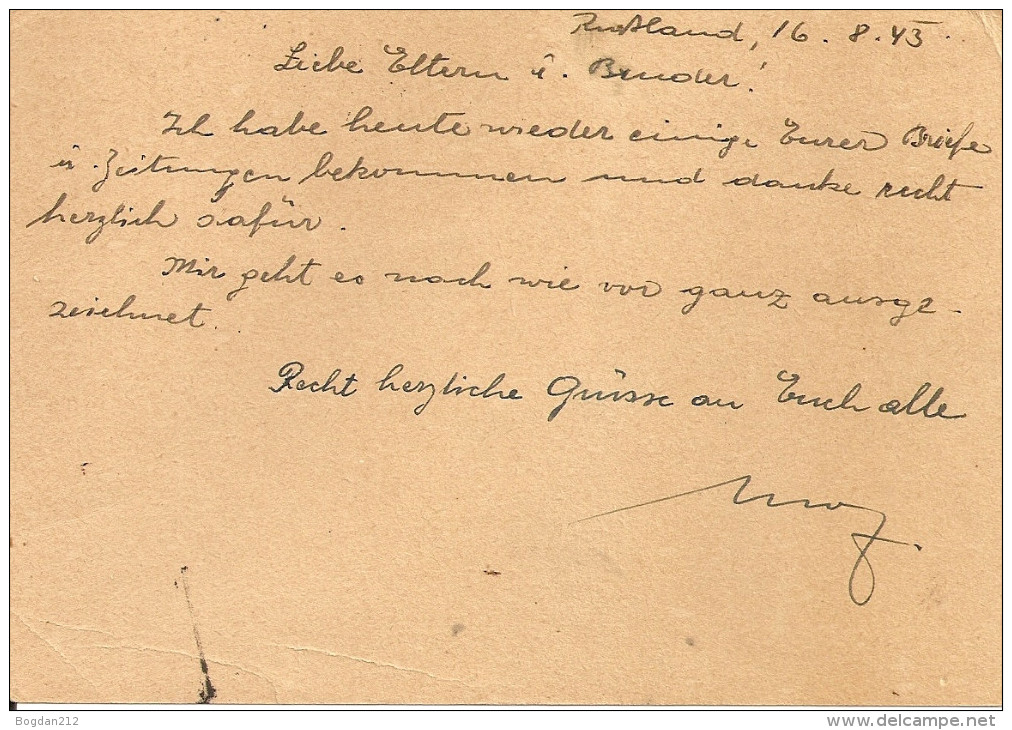 Rußland, 16. 8. 43
Liebe Eltern u. Bruder!
Ich habe heute wieder einige Eurer Briefe
u. Zeitungen bekommen und danke recht
herzlich dafür.
Mir geht es nach wie vor ganz ausge-
zeichnet.
Recht herzliche Grüsse an Euch alle
Bogdan212
delcampe.net